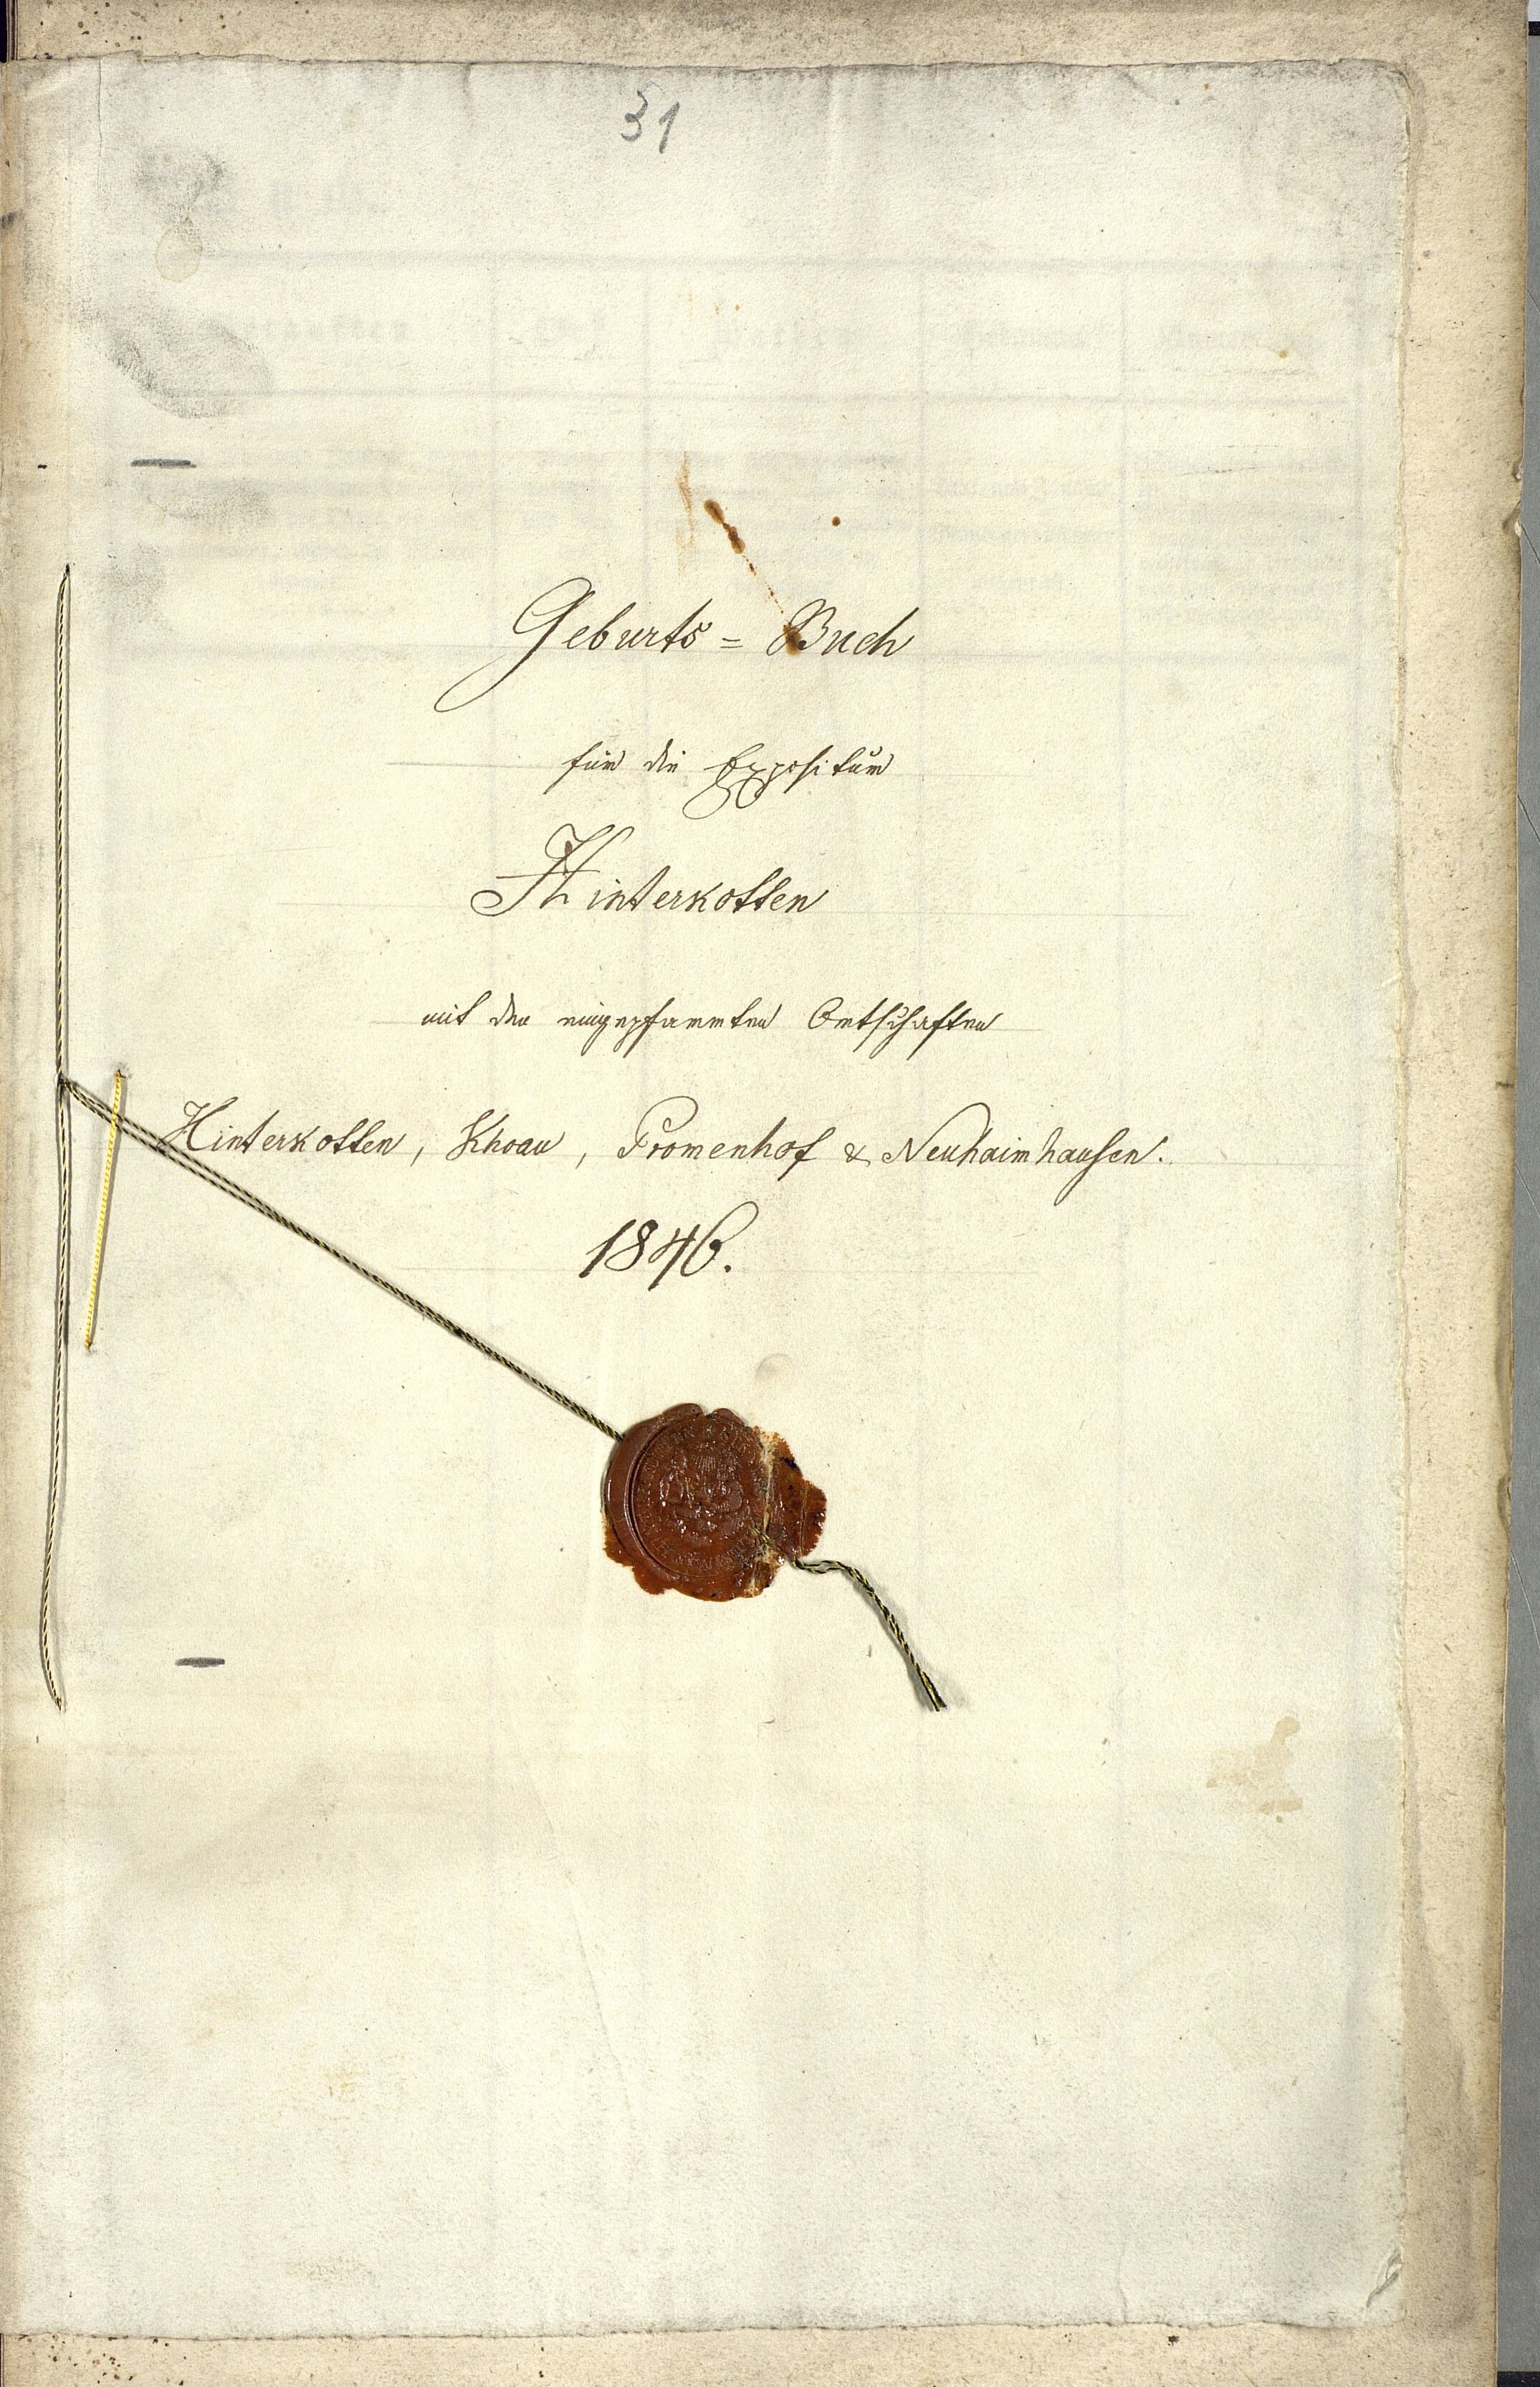 31
Geburts = Buch
für die Expositur
Hinterkotten
mit den eingepfarrten Ortschaften
Hinterkotten, Khoau, Promenhof & Neuhaimhausen.
1846.